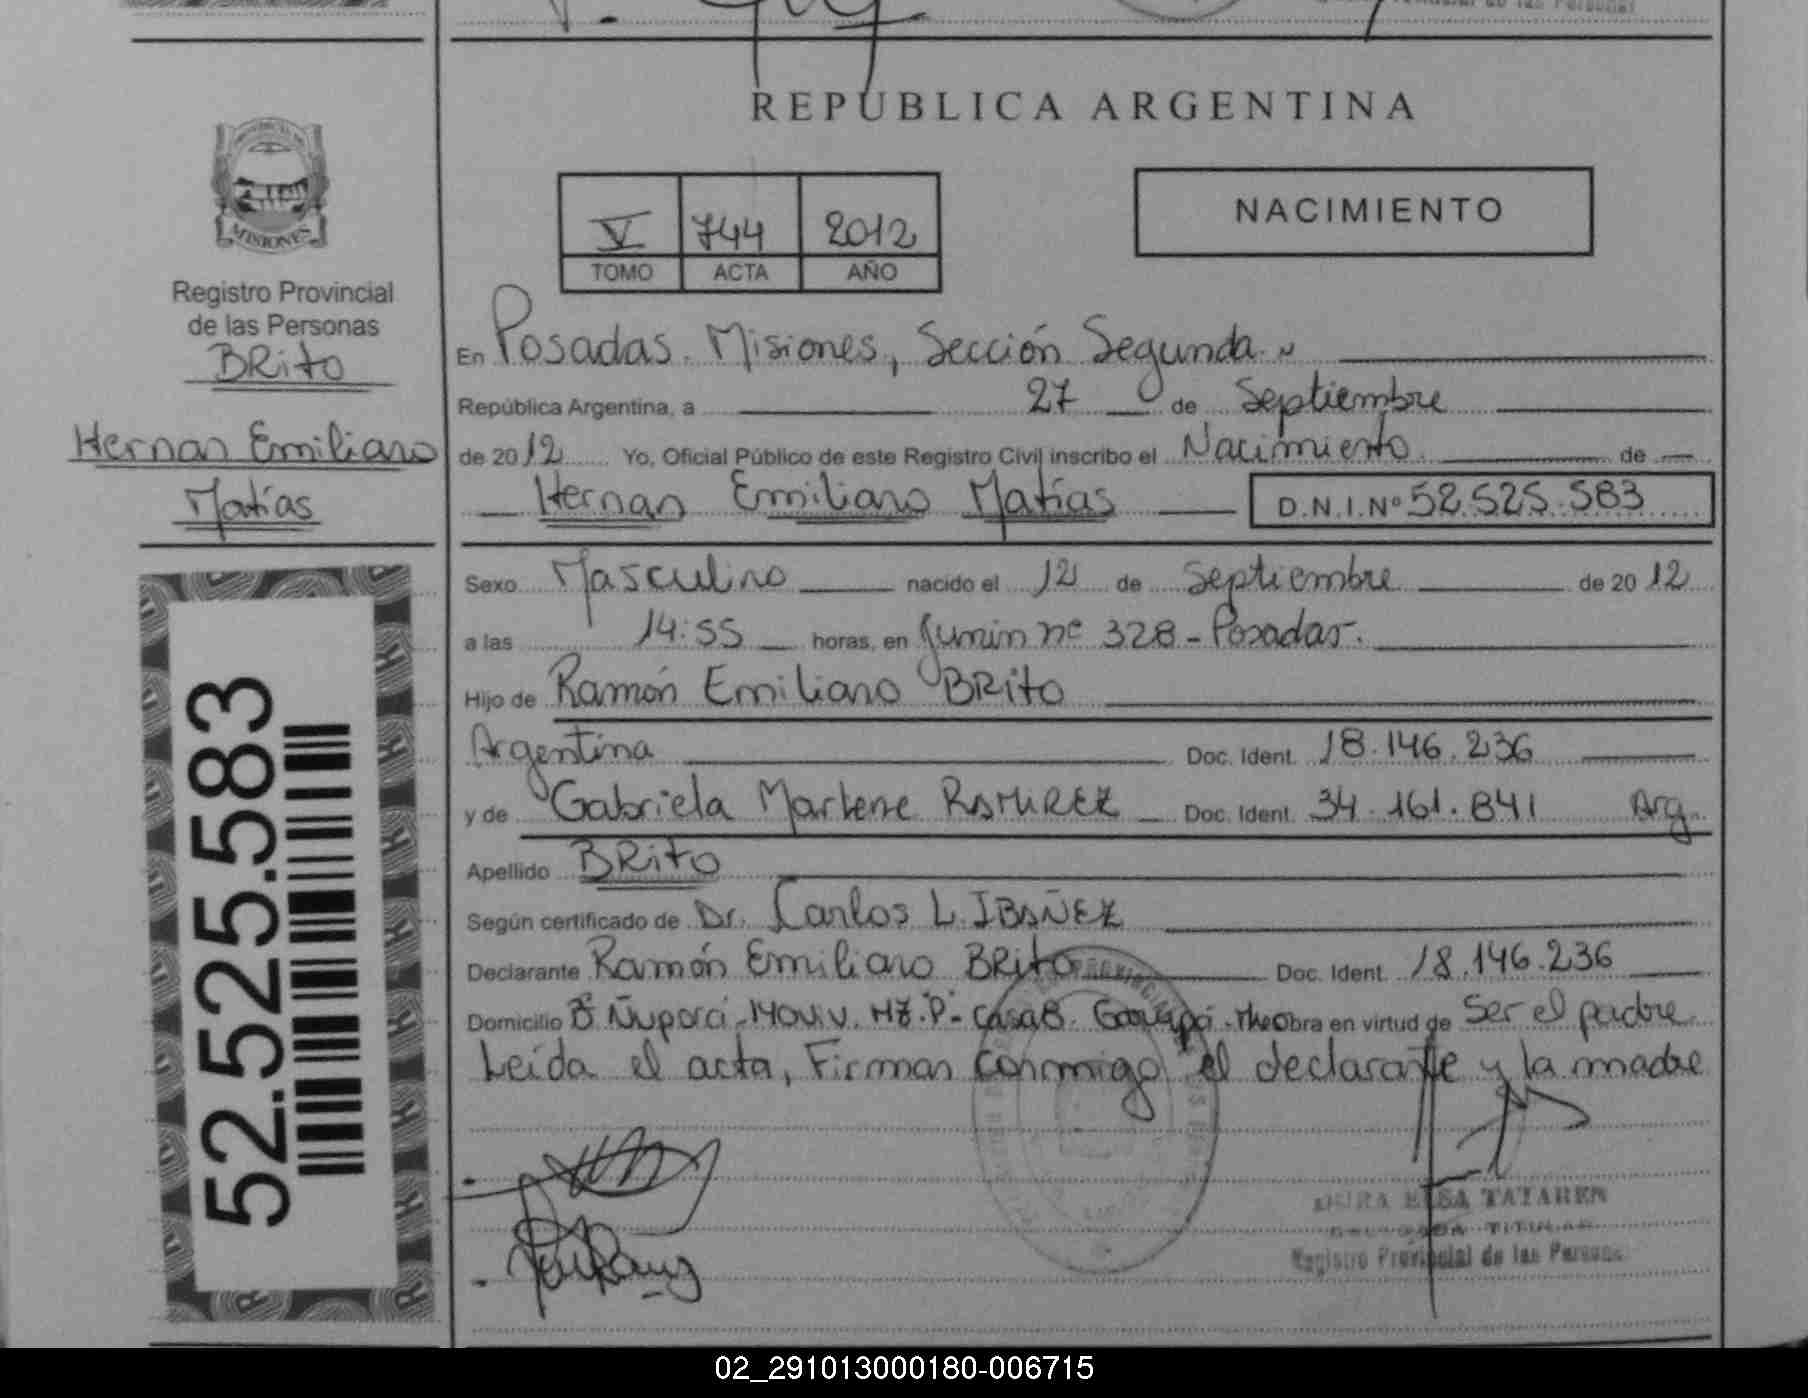 REPUBLICA ARGENTINA
MISIONES
Registro Provincial
de las Personas
BRito
Hernan Emiliano
Matías
52.525.583
V 744 2012
TOMO ACTA AÑO
NACIMIENTO
En Posadas. Misiones, Sección Segunda
República Argentina, a 27 de Septiembre
de 2012 Yo, Oficial Público de este Registro Civil inscribo el Nacimiento de
Hernan Emiliano Matías D.N.I.Nº 52.525.583
Sexo Masculino nacido el 12 de Septiembre de 2012
a las 14:55 horas, en Junin nº 328 - Posadas.
Hijo de Ramón Emiliano BRito
Argentina Doc. Ident. 18.146.236
y de Gabriela Marlene RAMIREZ Doc. Ident. 34.161.841 Arg.
Apellido BRito
Según certificado de Dr. Carlos L. IBAÑEZ
Declarante Ramón Emiliano BRito Doc. Ident. 18.146.236
Domicilio Bº MZ "P" - Casa 8. obra en virtud de Ser el padre
Leída el acta, Firman conmigo el declarante y la madre
ELSA TATAREN
TITULAR
Registro Provincial de las Personas
02_291013000180-006715